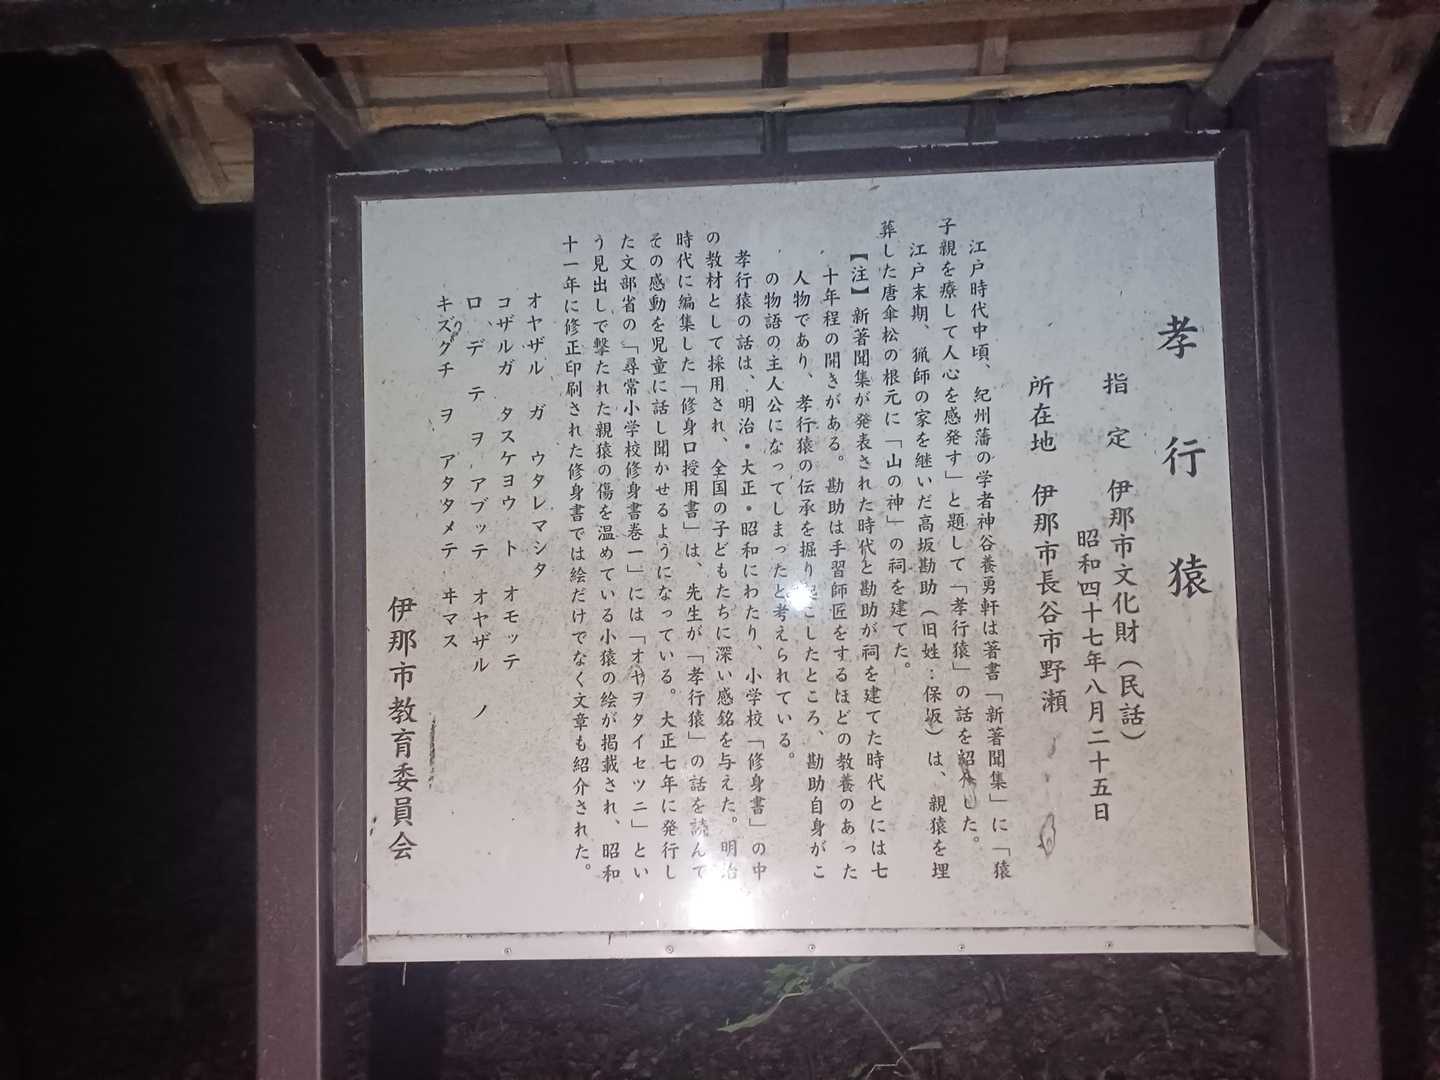 孝行猿
指定　伊那市文化財（民話）
昭和四十七年八月二十五日
所在地　伊那市長谷市野瀬
江戸時代中頃、紀州藩の学者神谷養勇軒は著書「新著聞集」に「猿
子親を療して人心を感発す」と題して「孝行猿」の話を紹介した。
江戸末期、猟師の家を継いだ高坂勘助（旧姓：保坂）は、親猿を埋
葬した唐傘松の根元に「山の神」の祠を建てた。
【注】新著聞集が発表された時代と勘助が祠を建てた時代とには七
十年程の開きがある。勘助は手習師匠をするほどの教養のあった
人物であり、孝行猿の伝承を掘り起こしたところ、勘助自身がこ
の物語の主人公になってしまったと考えられている。
孝行猿の話は、明治・大正・昭和にわたり、小学校「修身書」の中
の教材として採用され、全国の子どもたちに深い感銘を与えた。明治
時代に編集した「修身口授用書」は、先生が「孝行猿」の話を読んで
その感動を児童に話し聞かせるようになっている。大正七年に発行し
た文部省の「尋常小学校修身書巻一」には「オヤヲタイセツニ」とい
う見出しで撃たれた親猿の傷を温めている小猿の絵が掲載され、昭和
十一年に修正印刷された修身書では絵だけでなく文章も紹介された。
オヤザル　ガ　ウタレマシタ
コザルガ　タスケヨウ　ト　オモッテ
ロ、デ　テ　ヲ　アブッテ　オヤザル　ノ
キズグチ　ヲ　アタタメテ　ヰマス
伊那市教育委員会